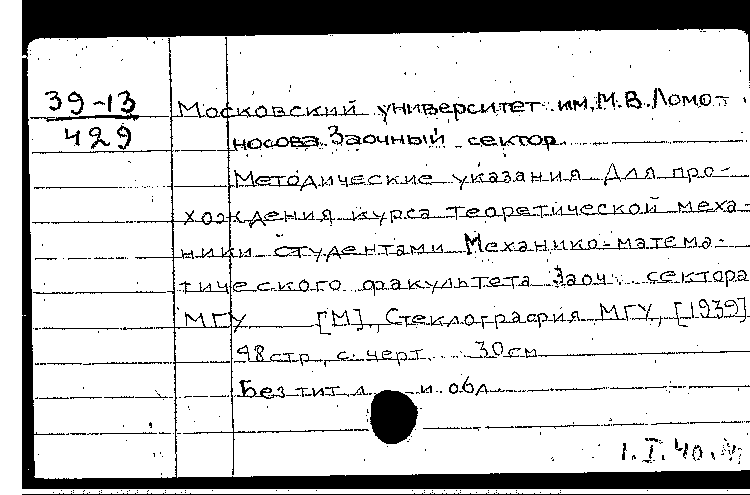 39-13
429
Московский университет им. М.В. Ломо-
носова Заочный сектор.
Методические указания для про-
хождения курса теоретической меха-
ники студентами Механико-матема-
тического факультета Заоч. сектора
МГУ [М], Стеклография МГУ, [1939]
48 стр, с. черт. 30 см
Без тит. л. и обл.
1.I.40.